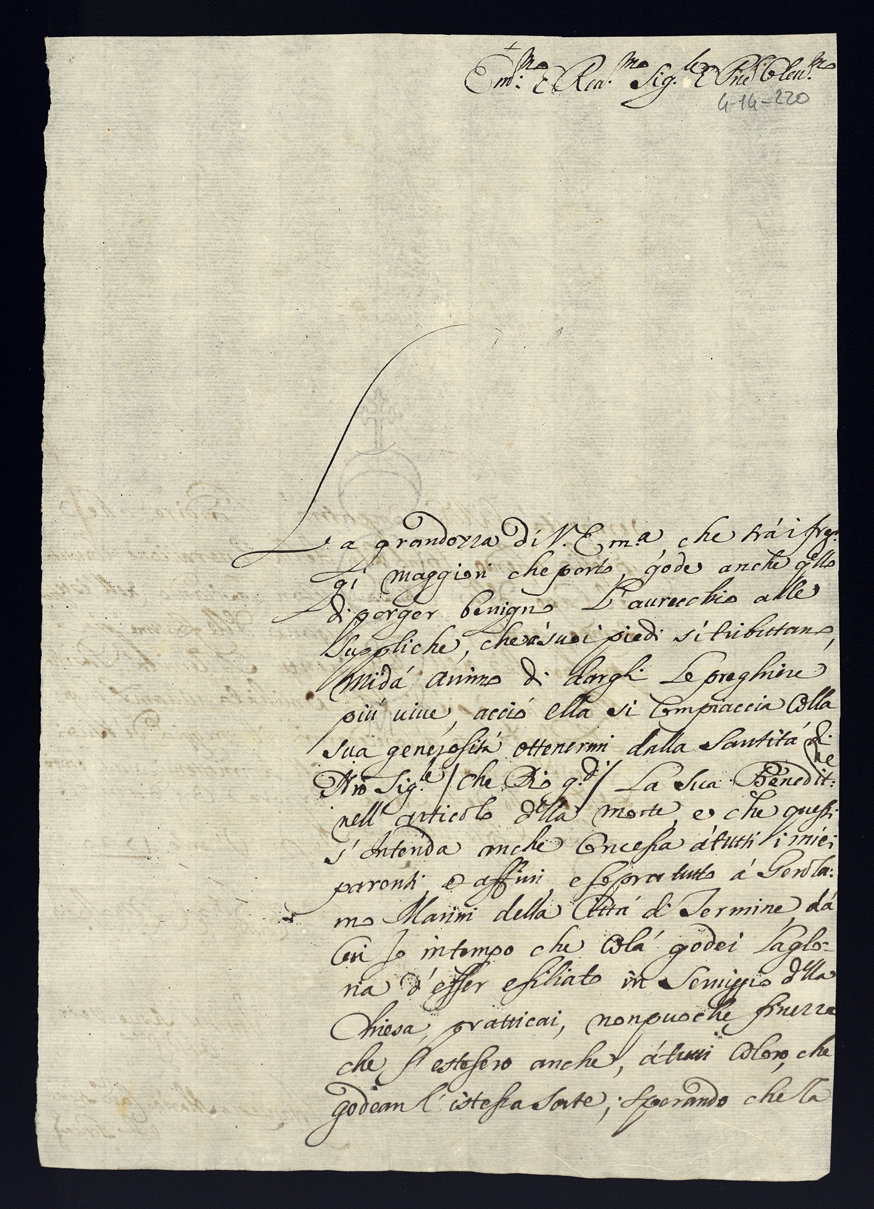 Em.mo e Rev.mo Sig.re e Pne Clem.mo
4-14-220
La grandezza di V. Em.a che trà i fre:
gi maggiori che porta gode anche q.llo
di porger benigno l'aurecchio alle
suppliche, che à suoi piedi si tributtano,
mi dà animo di dargli le preghiere
più vive, acciò ella si compiaccia colla
sua generosità ottenermi dalla Santità di
Nro Sig.re /che Dio g.di/ La sua Benedit:ne
nell'articolo della morte, e che questi
s'intenda anche concessa à tutti i miei
parenti, e affini, e sopra tutto à Gerola:
mo Marini della Città di Termine, dà
cui Io in tempo che colà godei la glo:
ria d'esser essiliato in Serviggio della
Chiesa, pratticai, non puoche finezze
che s'estesero anche, à tutti coloro, che
godean l'istessa sorte; sperando che la